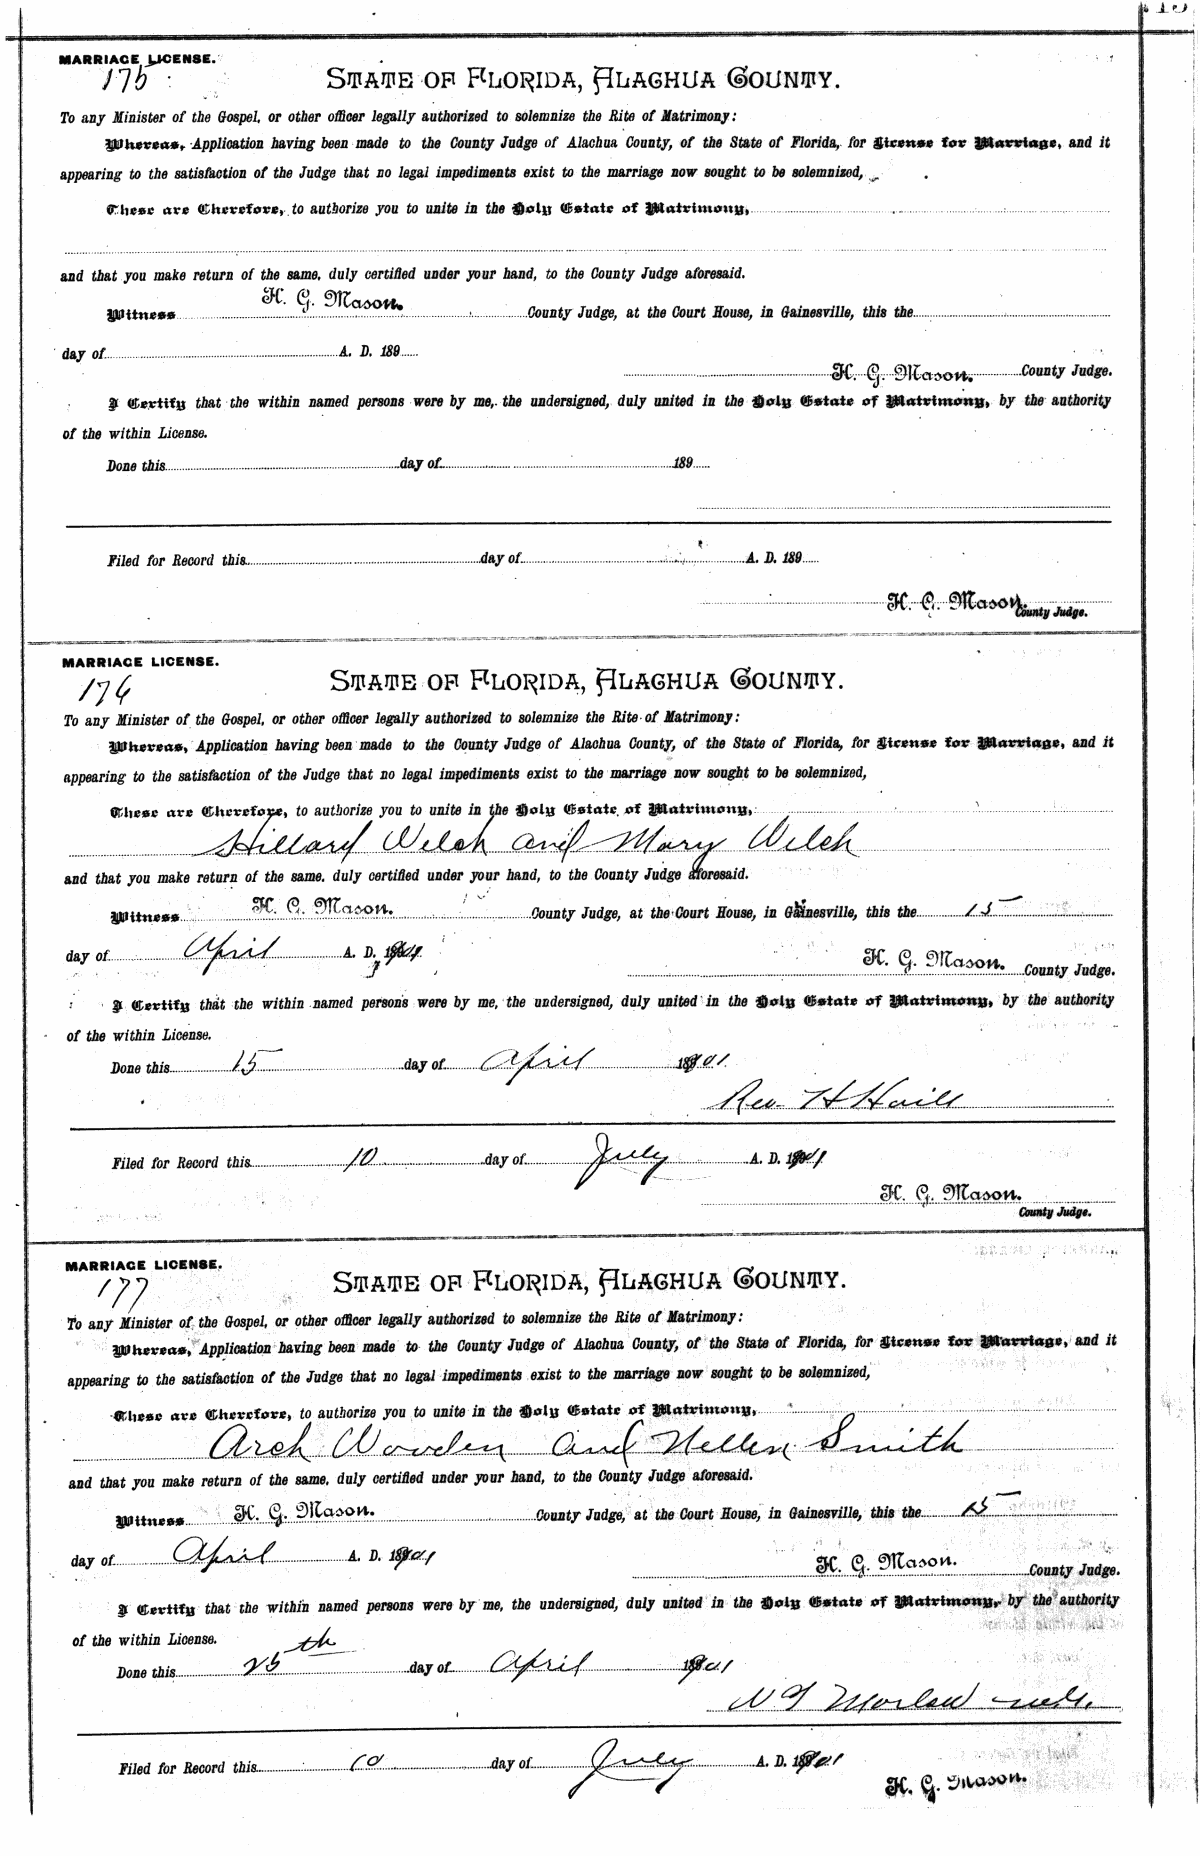 MARRIAGE LICENSE.
175
STATE OF FLORIDA, ALACHUA COUNTY.
To any Minister of the Gospel, or other officer legally authorized to solemnize the Rite of Matrimony:
Whereas, Application having been made to the County Judge of Alachua County, of the State of Florida, for License for Marriage, and it
appearing to the satisfaction of the Judge that no legal impediments exist to the marriage now sought to be solemnized,
These are Therefore, to authorize you to unite in the Holy Estate of Matrimony,
and that you make return of the same, duly certified under your hand, to the County Judge aforesaid.
Witness H. G. Mason. County Judge, at the Court House, in Gainesville, this the
day of A. D. 189
H. G. Mason. County Judge.
I Certify that the within named persons were by me, the undersigned, duly united in the Holy Estate of Matrimony, by the authority
of the within License.
Done this day of 189
Filed for Record this day of A. D. 189
H. G. Mason.
County Judge.
MARRIAGE LICENSE.
176
STATE OF FLORIDA, ALACHUA COUNTY.
To any Minister of the Gospel, or other officer legally authorized to solemnize the Rite of Matrimony:
Whereas, Application having been made to the County Judge of Alachua County, of the State of Florida, for License for Marriage, and it
appearing to the satisfaction of the Judge that no legal impediments exist to the marriage now sought to be solemnized,
These are Therefore, to authorize you to unite in the Holy Estate of Matrimony,
Hillard Welch and Mary Welch
and that you make return of the same, duly certified under your hand, to the County Judge aforesaid.
Witness H. G. Mason. County Judge, at the Court House, in Gainesville, this the 15
day of April A. D. 1901
H. G. Mason. County Judge.
I Certify that the within named persons were by me, the undersigned, duly united in the Holy Estate of Matrimony, by the authority
of the within License.
Done this 15 day of April 1901
Rev. H Haill
Filed for Record this 10 day of July A. D. 1901
H. G. Mason.
County Judge.
MARRIAGE LICENSE.
177
STATE OF FLORIDA, ALACHUA COUNTY.
To any Minister of the Gospel, or other officer legally authorized to solemnize the Rite of Matrimony:
Whereas, Application having been made to the County Judge of Alachua County, of the State of Florida, for License for Marriage, and it
appearing to the satisfaction of the Judge that no legal impediments exist to the marriage now sought to be solemnized,
These are Therefore, to authorize you to unite in the Holy Estate of Matrimony,
Arch Wooden and Hellen Smith
and that you make return of the same, duly certified under your hand, to the County Judge aforesaid.
Witness H. G. Mason. County Judge, at the Court House, in Gainesville, this the 15
day of April A. D. 1901
H. G. Mason. County Judge.
I Certify that the within named persons were by me, the undersigned, duly united in the Holy Estate of Matrimony, by the authority
of the within License.
Done this 25th day of April 1901
Filed for Record this 10 day of July A. D. 1901
H. G. Mason.